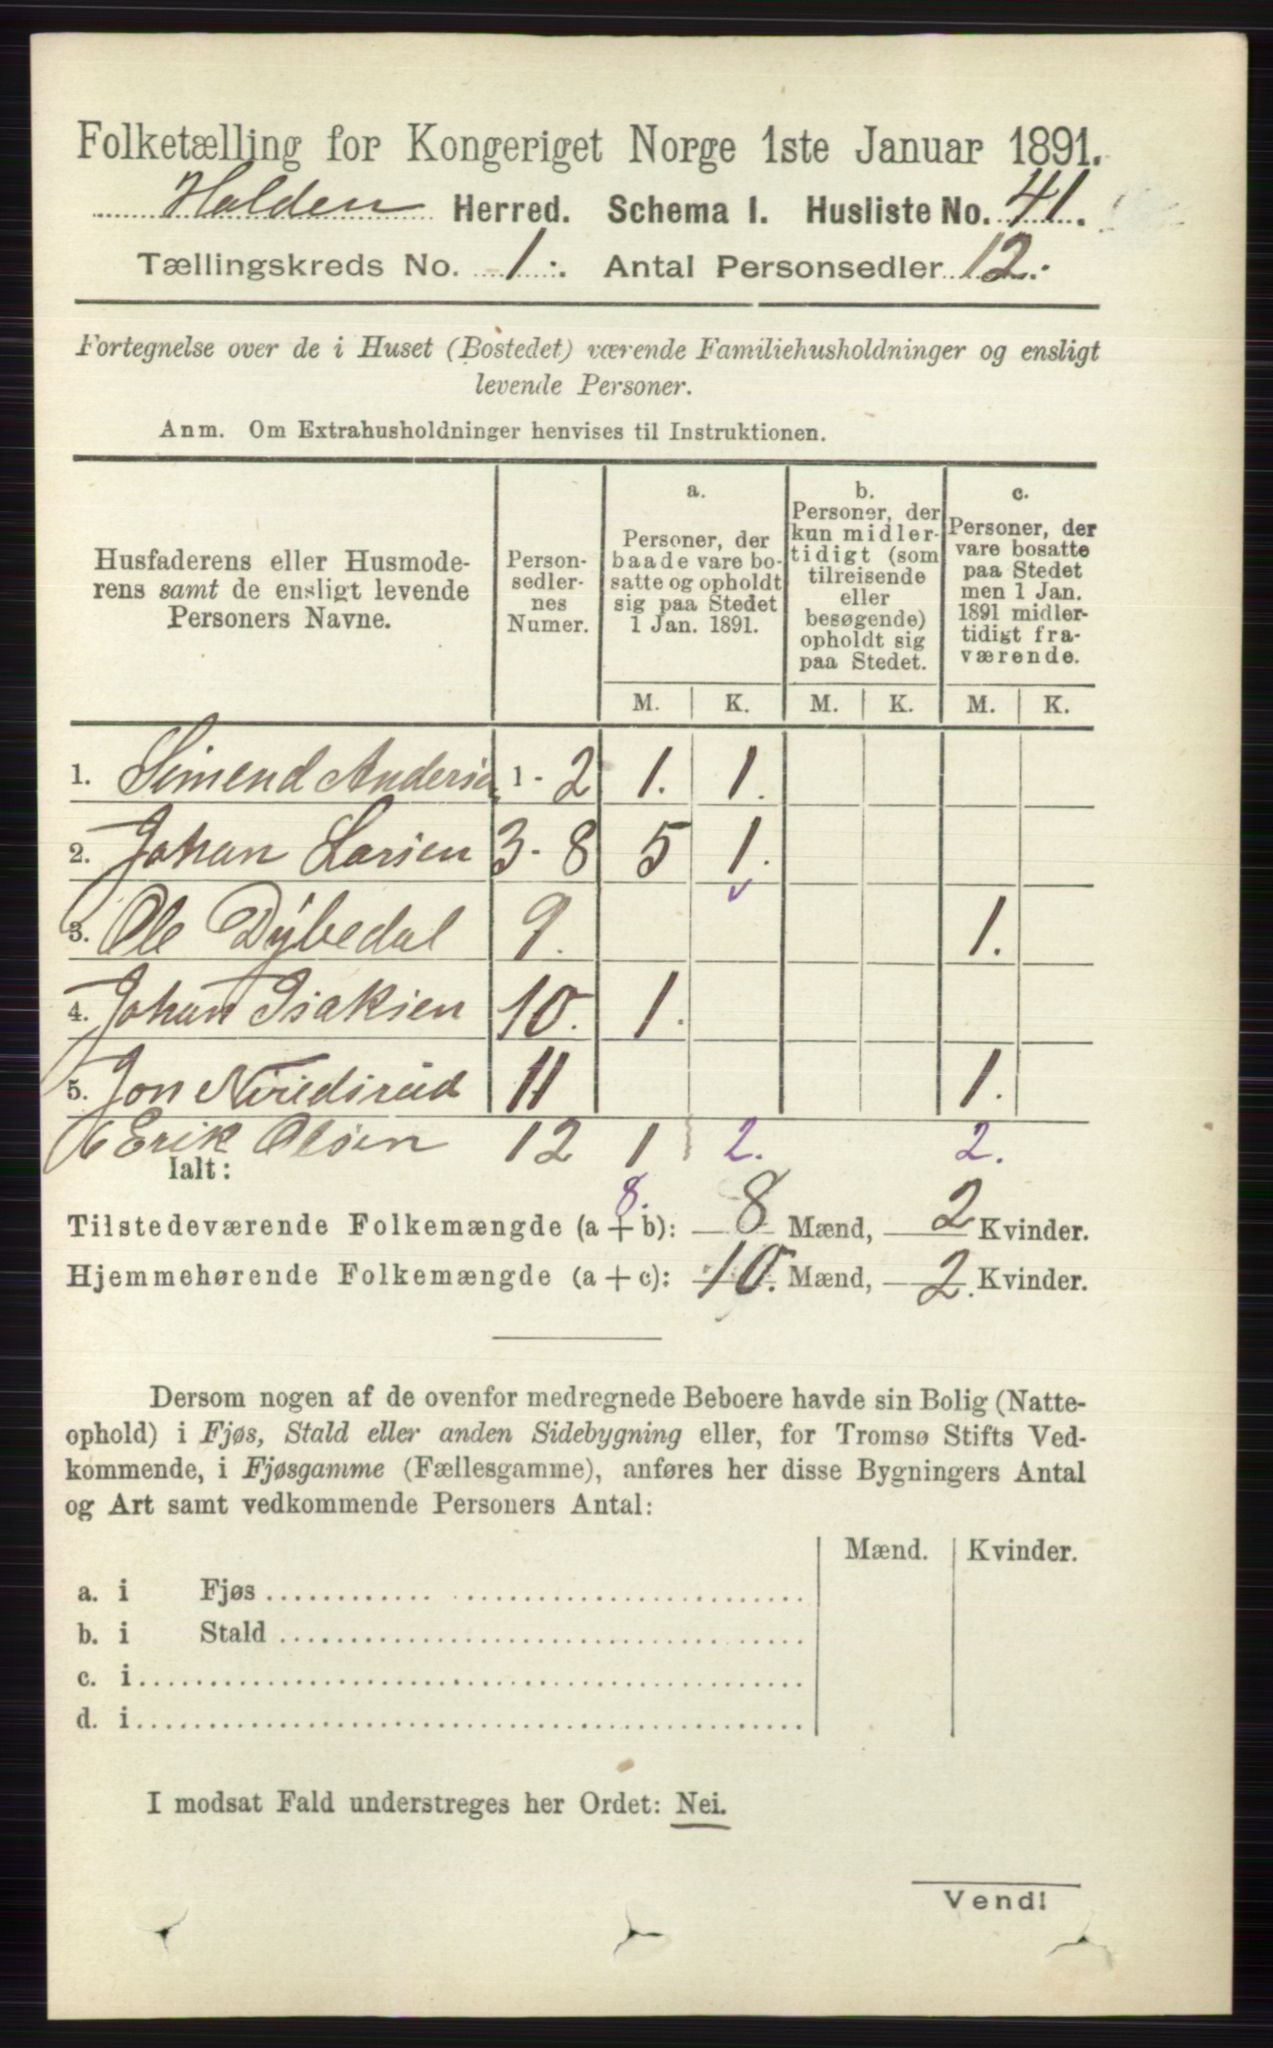 Folketælling for Kongeriget Norge 1ste Januar 1891.
Holden Herred. Schema I. Husliste No. 41.
Tællingskreds No. 1. Antal Personsedler 12.
Fortegnelse over de i Huset (Bostedet) værende Familiehusholdninger og ensligt
levende Personer.
Anm. Om Extrahusholdninger henvises til Instruktionen.
Husfaderens eller Husmode-
rens samt de ensligt levende
Personers Navne.
Person-
sedler-
nes
Numer.
a.
Personer, der
baade vare bo-
satte og opholdt
sig paa Stedet
1 Jan. 1891.
b.
Personer, der
kun midler-
tidigt (som
tilreisende
eller
besøgende)
opholdt sig
paa Stedet.
c.
Personer, der
vare bosatte
paa Stedet
men 1 Jan.
1891 midler-
tidigt fra-
værende.
M. K. M. K. M. K.
1. Simend Andersen 1 - 2 1. 1.
2. Johan Larsen 3 - 8 5 1.
3. Ole Dybedal 9. 1.
4. Johan Isaksen 10. 1.
5. Jon 11 1.
6 Erik Olsen 12 1 2. 2.
Ialt:
8.
Tilstedeværende Folkemængde (a + b): 8 Mænd, 2 Kvinder.
Hjemmehørende Folkemængde (a + c): 10. Mænd, 2. Kvinder.
Dersom nogen af de ovenfor medregnede Beboere havde sin Bolig (Natte-
ophold) i Fjøs, Stald eller anden Sidebygning eller, for Tromsø Stifts Ved-
kommende, i Fjøsgamme (Fællesgamme), anføres her disse Bygningers Antal
og Art samt vedkommende Personers Antal:
Mænd. Kvinder.
a. i Fjøs
b. i Stald
c. i
d. i
I modsat Fald understreges her Ordet: Nei.
Vend!